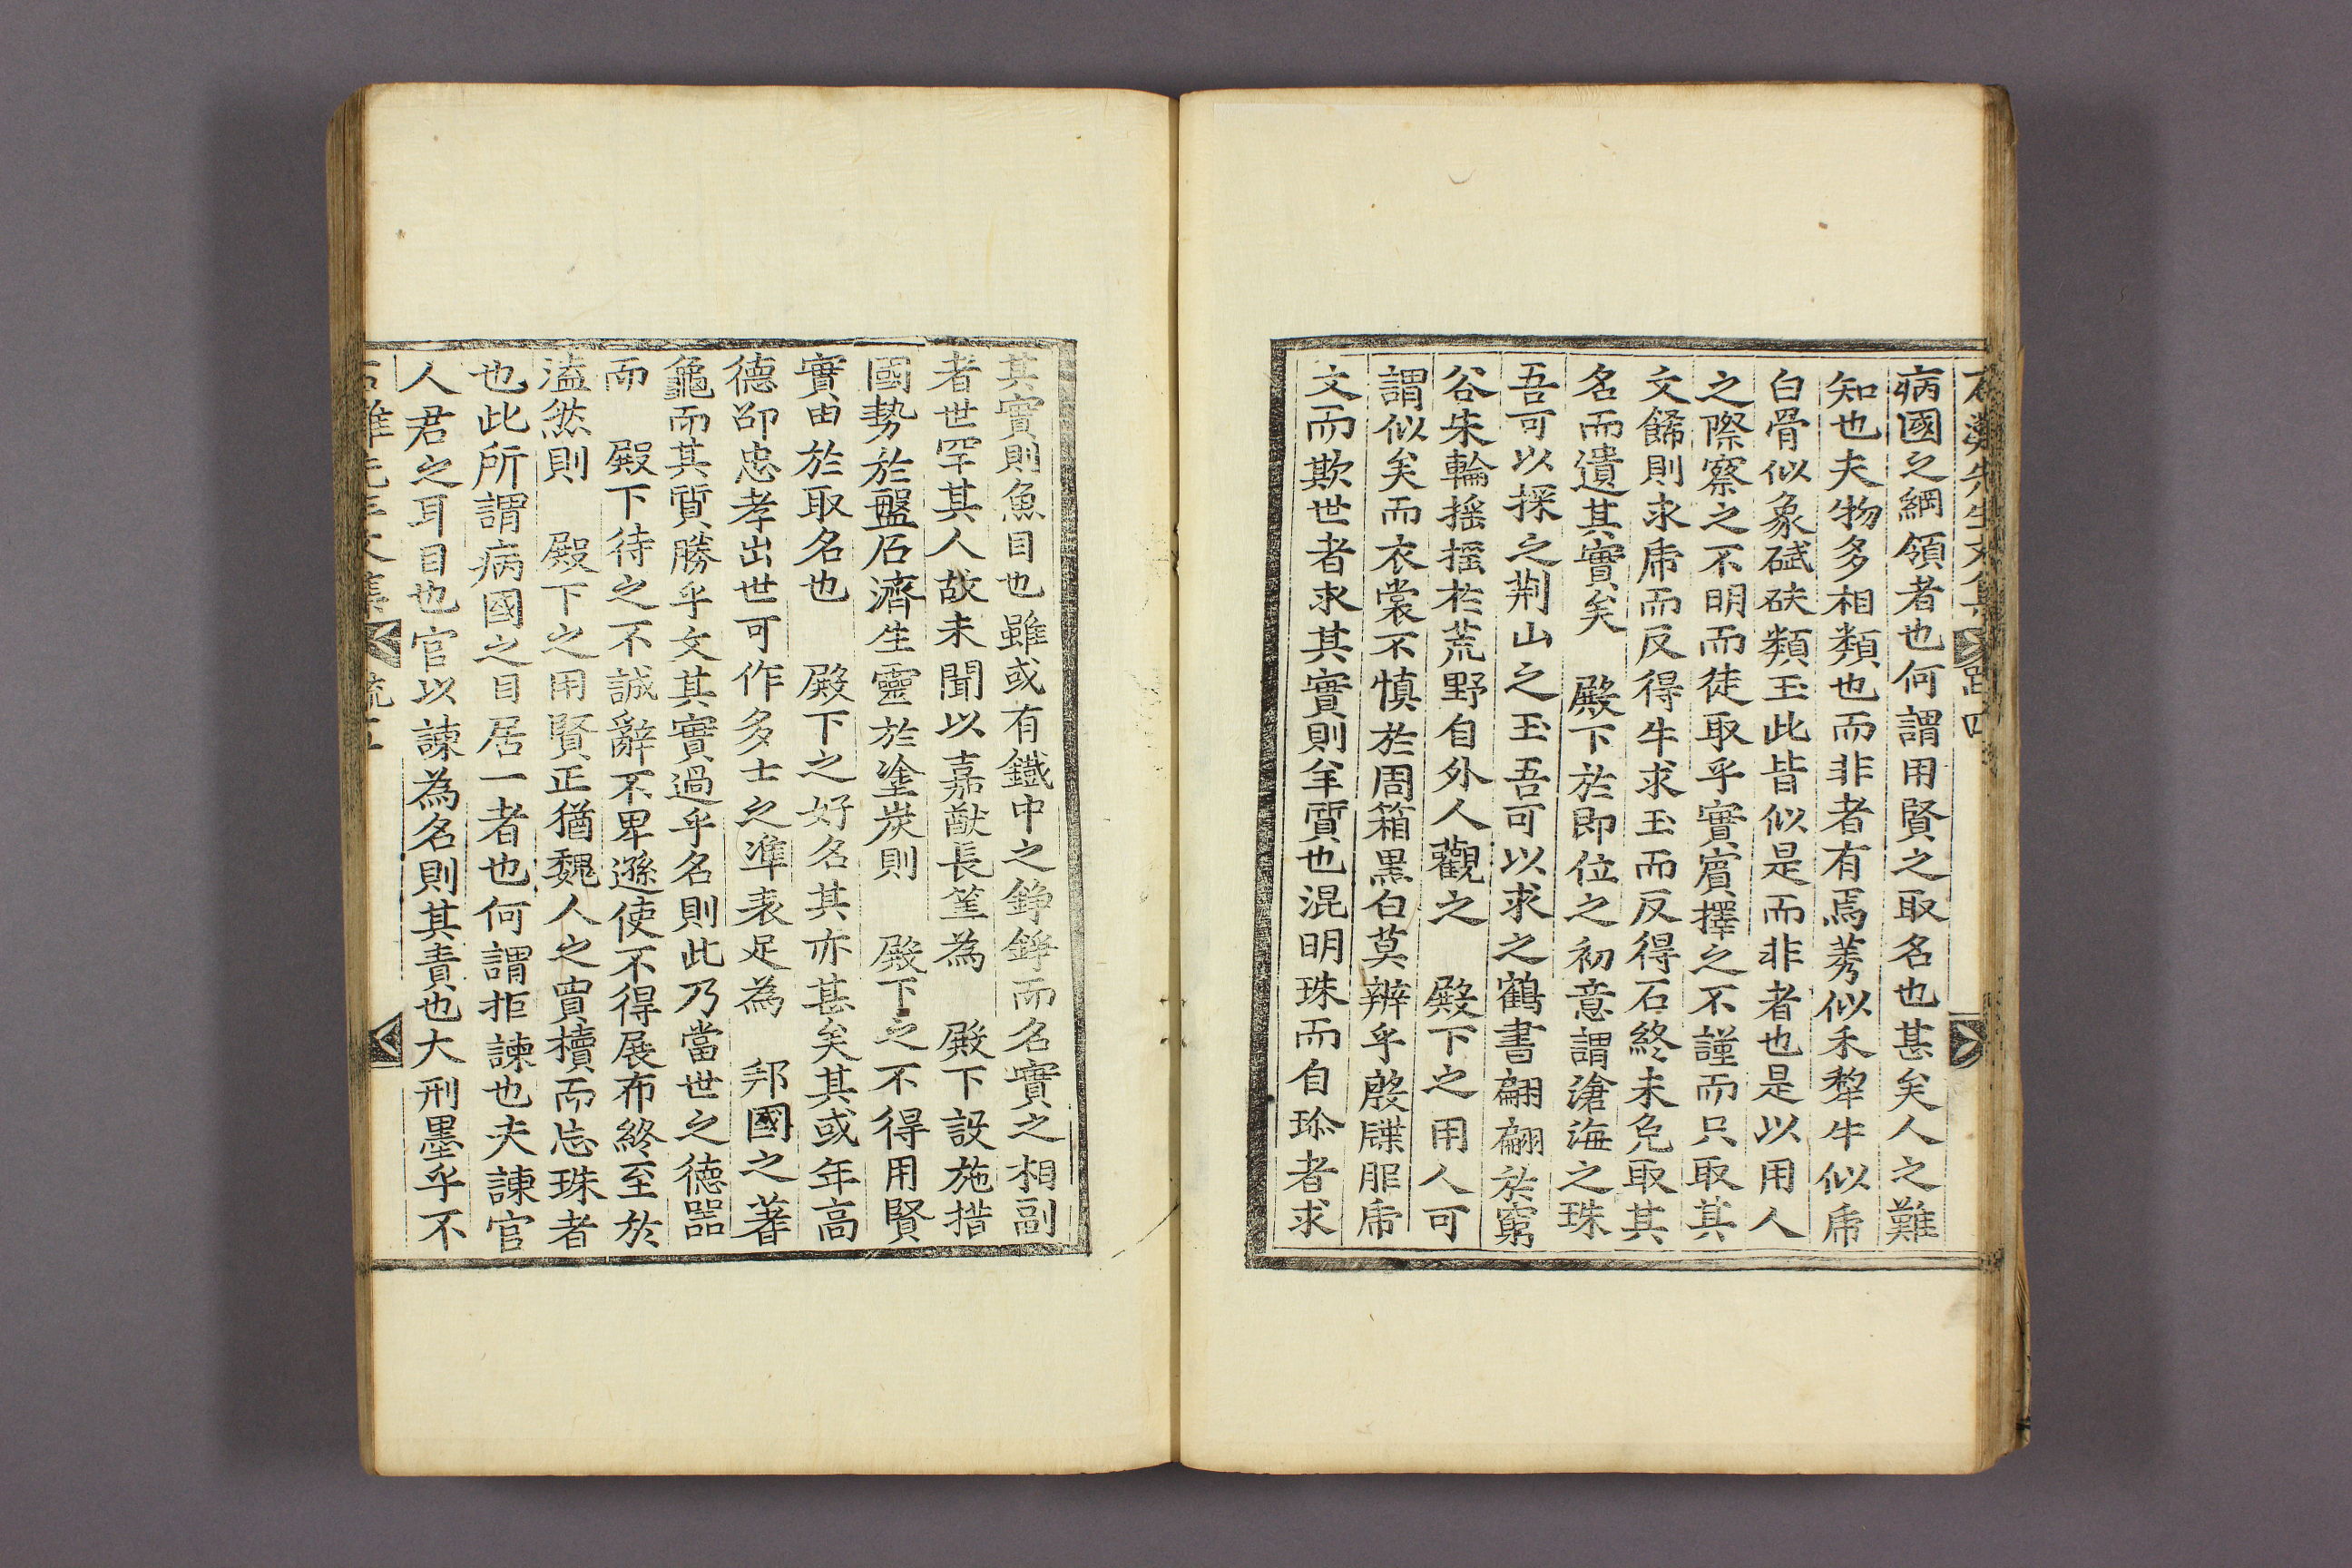 病國之綱領者也何謂用賢之取名也甚矣人之難
知也夫物多相類也而非者有焉莠似禾犂牛似乕
白骨似象碔砆類玉此皆似是而非者也是以用人
之際察之不明而徒取乎實賓擇之不謹而只取其
文餙則求乕而反得牛求玉而反得石終未免取其
名而遺其實矣 殿下於即位之初意謂滄海之珠
吾可以採之荆山之玉吾可以求之鶴書翩翩於窮
谷朱輪揺揺於荒野自外人觀之 殿下之用人可
謂似矣而衣裳不慎於周箱黒白莫辨乎殷牒服乕
文而欺世者求其實則羊質也混明珠而自珎者求
其實則魚目也雖或有鐵中之錚錚而名實之相副
者世罕其人故未聞以嘉猷長筭為 殿下設施措
國勢於盤石濟生靈於塗炭則 殿下之不得用賢
實由於取名也 殿下之好名其亦甚矣其或年高
德卲忠孝出世可作多士之準表足為 邦國之蓍
龜而其質勝乎文其實過乎名則此乃當世之德噐
而 殿下待之不誠辭不卑遜使不得展布終至於
溘然則 殿下之用賢正猶魏人之賣櫝而忘珠者
也此所謂病國之目居一者也何謂拒諫也夫諫官
人君之耳目也官以諫為名則其責也大刑墨乎不